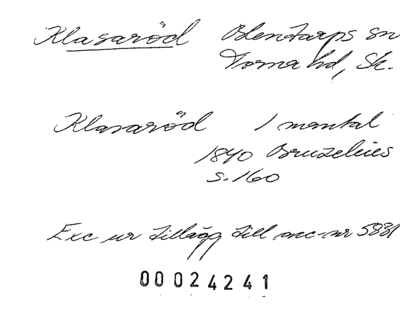 Klasaröd Blentarps sn
Torna hd, Sk.
Klasaröd 1 mantal
1840 Bruzelius
s. 160
Exc ur tillägg till acc-nr 5881
00024241